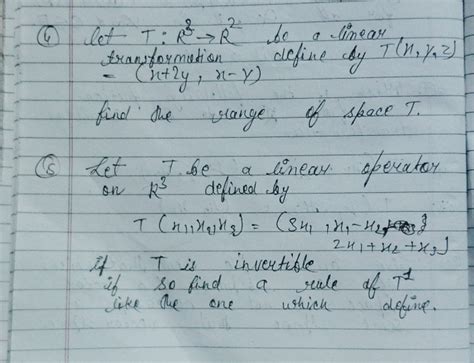 ④ let T : R³ → R² be a linear
transformation define by T(x, y, z)
= (x+2y, x-y)
find the range of space T.
⑤ Let T be a linear operator
on R³ defined by
T(x₁, x₂, x₃) = (3x₁, x₁-x₂,
2x₁+x₂+x₃)
If T is invertible
if so find a rule of T⁻¹
like the one which define.